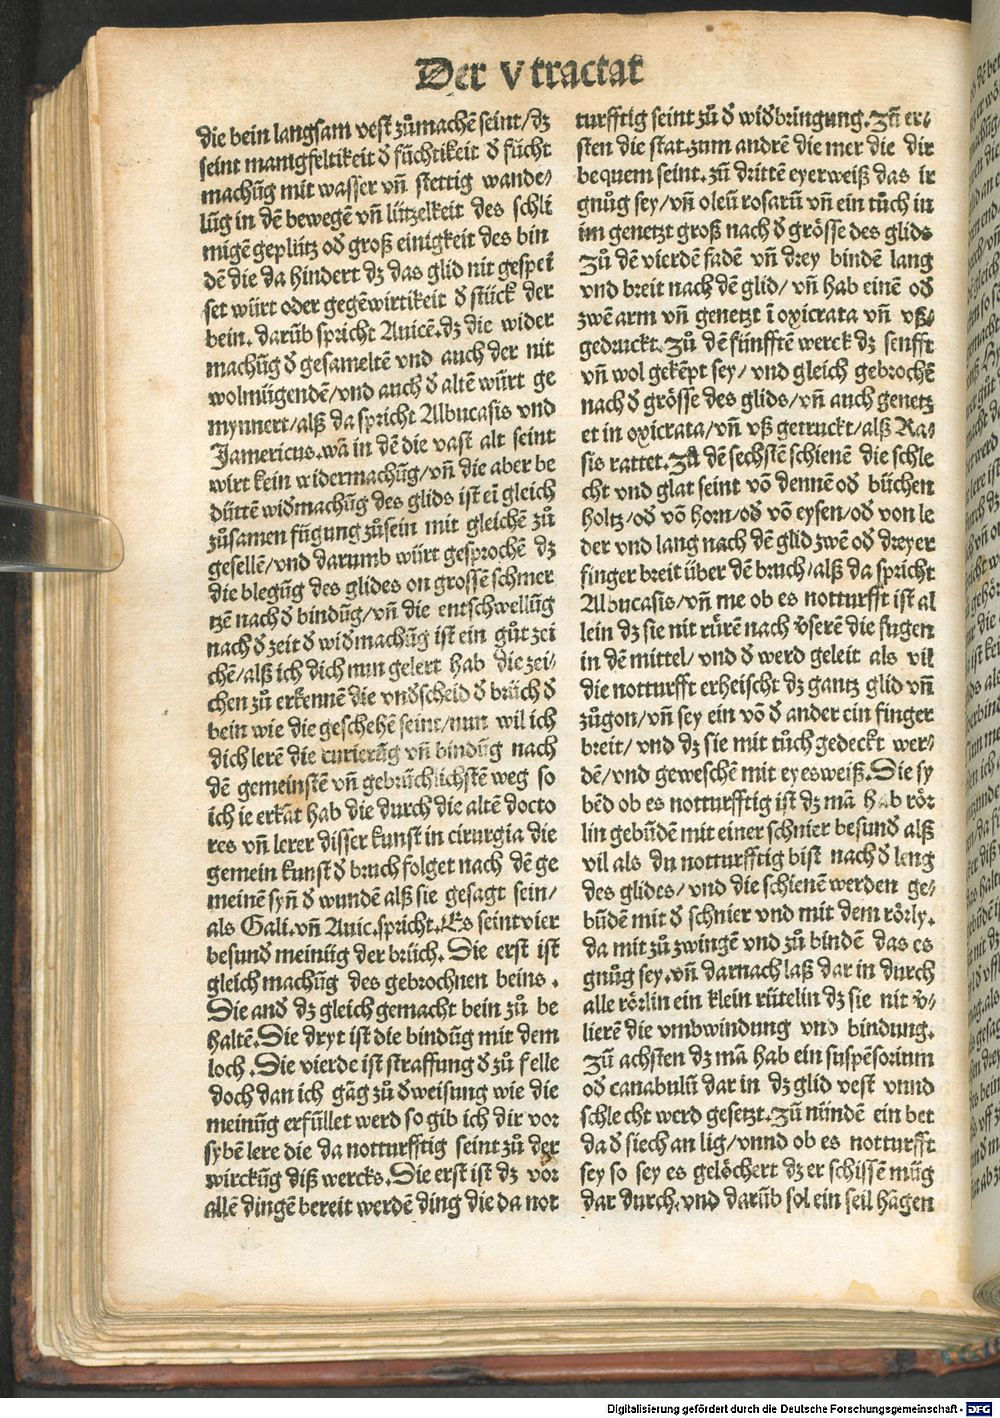 Der v tractat
die bein langsam vest zůmachē seint/dz
seint manigfeltikeit đ fůchtikeit đ fücht
machūg mit wasser vñ stettig wande⸗
lūg in dē bewegē vñ lützelkeit des schli
migē geplütz ođ groß einigkeit des bin
dē die da hindert dz das glid nit gespei
set würt oder gegēwirtikeit đ stück der
bein. darūb spricht Auicē. dz die wider
machūg đ gesameltē vnd auch der nit
wolmügendē/vnd auch đ altē würt ge
mynnert/alß da spricht Albucasis vnd
Jamericus. wā in dē die vast alt seint
wirt kein widermachūg/vñ die aber be
düttē wiđmachūg des glids ist eī gleich
zůsamen fügung zůsein mit gleichē zů
gesellē/vnd darumb würt gesprochē dz
die blegūg des glides on grossē schmer
tzē nach đ bindūg/vñ die entschwellūg
nach đ zeit đ wiđmachūg ist ein gůt zei
chē/alß ich dich nun gelert hab die zei⸗
chen zů erkennē die vnđscheid đ brüch đ
bein wie die geschehē seint/nun wil ich
dich lerē die curierūg vñ bindūg nach
dē gemeinstē vñ gebrüchlichstē weg so
ich ie erkāt hab die durch die altē docto
res vñ lerer disser kunst in cirurgia die
gemein kunst đ bruch folget nach dē ge
meinē syñ đ wundē alß sie gesagt sein/
als Gali. vñ Auic. spricht. Es seint vier
besunđ meinūg der brüch. Die erst ist
gleich machūg des gebrochnen beins.
Die anđ dz gleich gemacht bein zů be
haltē. Die dryt ist die bindūg mit dem
loch. Die vierde ist straffung đ zů felle
doch dan ich gāg zů đweisung wie die
meinūg erfüllet werd so gib ich dir vor
sybē lere die da notturfftig seint zů der
wirckūg diß wercks. Die erst ist dz vor
allē dingē bereit werdē ding die da not
turfftig seint zů đ wiđbringung. Zū er⸗
sten die stat. zum andrē die mer die dir
bequem seint. zū drittē eyerweiß das ir
gnůg sey/vñ oleū rosarū vñ ein tůch in
im genetzt groß nach đ grösse des glids
Zů dē vierdē fadē vñ drey bindē lang
vnd breit nach dē glid/vñ hab einē ođ
zwē arm vñ genetzt ī oxicrata vñ vß⸗
gedruckt. Zů dē fünfftē werck dz senfft
vñ wol gekēpt sey/vnd gleich gebrochē
nach đ grösse des glids/vñ auch genetz
et in oxicrata/vñ vß getruckt/alß Ra⸗
sis rattet. Zů dē sechstē schienē die schle
cht vnd glat seint vō dennē ođ büchen
holtz/ođ vō horn/ođ vō eysen/ođ von le
der vnd lang nach dē glid zwē ođ dreyer
finger breit über dē bruch/alß da spricht
Albucasis/vñ me ob es notturfft ist al
lein dz sie nit rürē nach v̄serē die fugen
in dē mittel/vnd đ werd geleit als vil
die notturfft erheischt dz gantz glid vñ
zůgon/vñ sey ein vō đ ander ein finger
breit/vnd dz sie mit tůch gedeckt wer⸗
dē/vnd geweschē mit eyesweiß. Die sy
bēd ob es notturfftig ist dz mā hab rör⸗
lin gebūdē mit einer schnier besunđ alß
vil als du notturfftig bist nach đ leng
des glides/vnd die schienē werden ge⸗
būdē mit đ schnier vnd mit dem rörly.
da mit zů zwingē vnd zů bindē das es
gnůg sey. vñ darnach laß dar in durch
alle rörlin ein klein rütelin dz sie nit v̄⸗
lierē die vmbwindung vnd bindung.
Zū achsten dz mā hab ein suspēsorium
ođ canabulū dar in dz glid vest vnnd
schlecht werd gesetzt. Zū nündē ein bet
da đ siech an lig/vnnd ob es notturfft
sey so sey es gelöchert dz er schissē müg
dar durch. vnd darūb sol ein seil hāgen
Digitalisierung gefördert durch die Deutsche Forschungsgemeinschaft - DFG